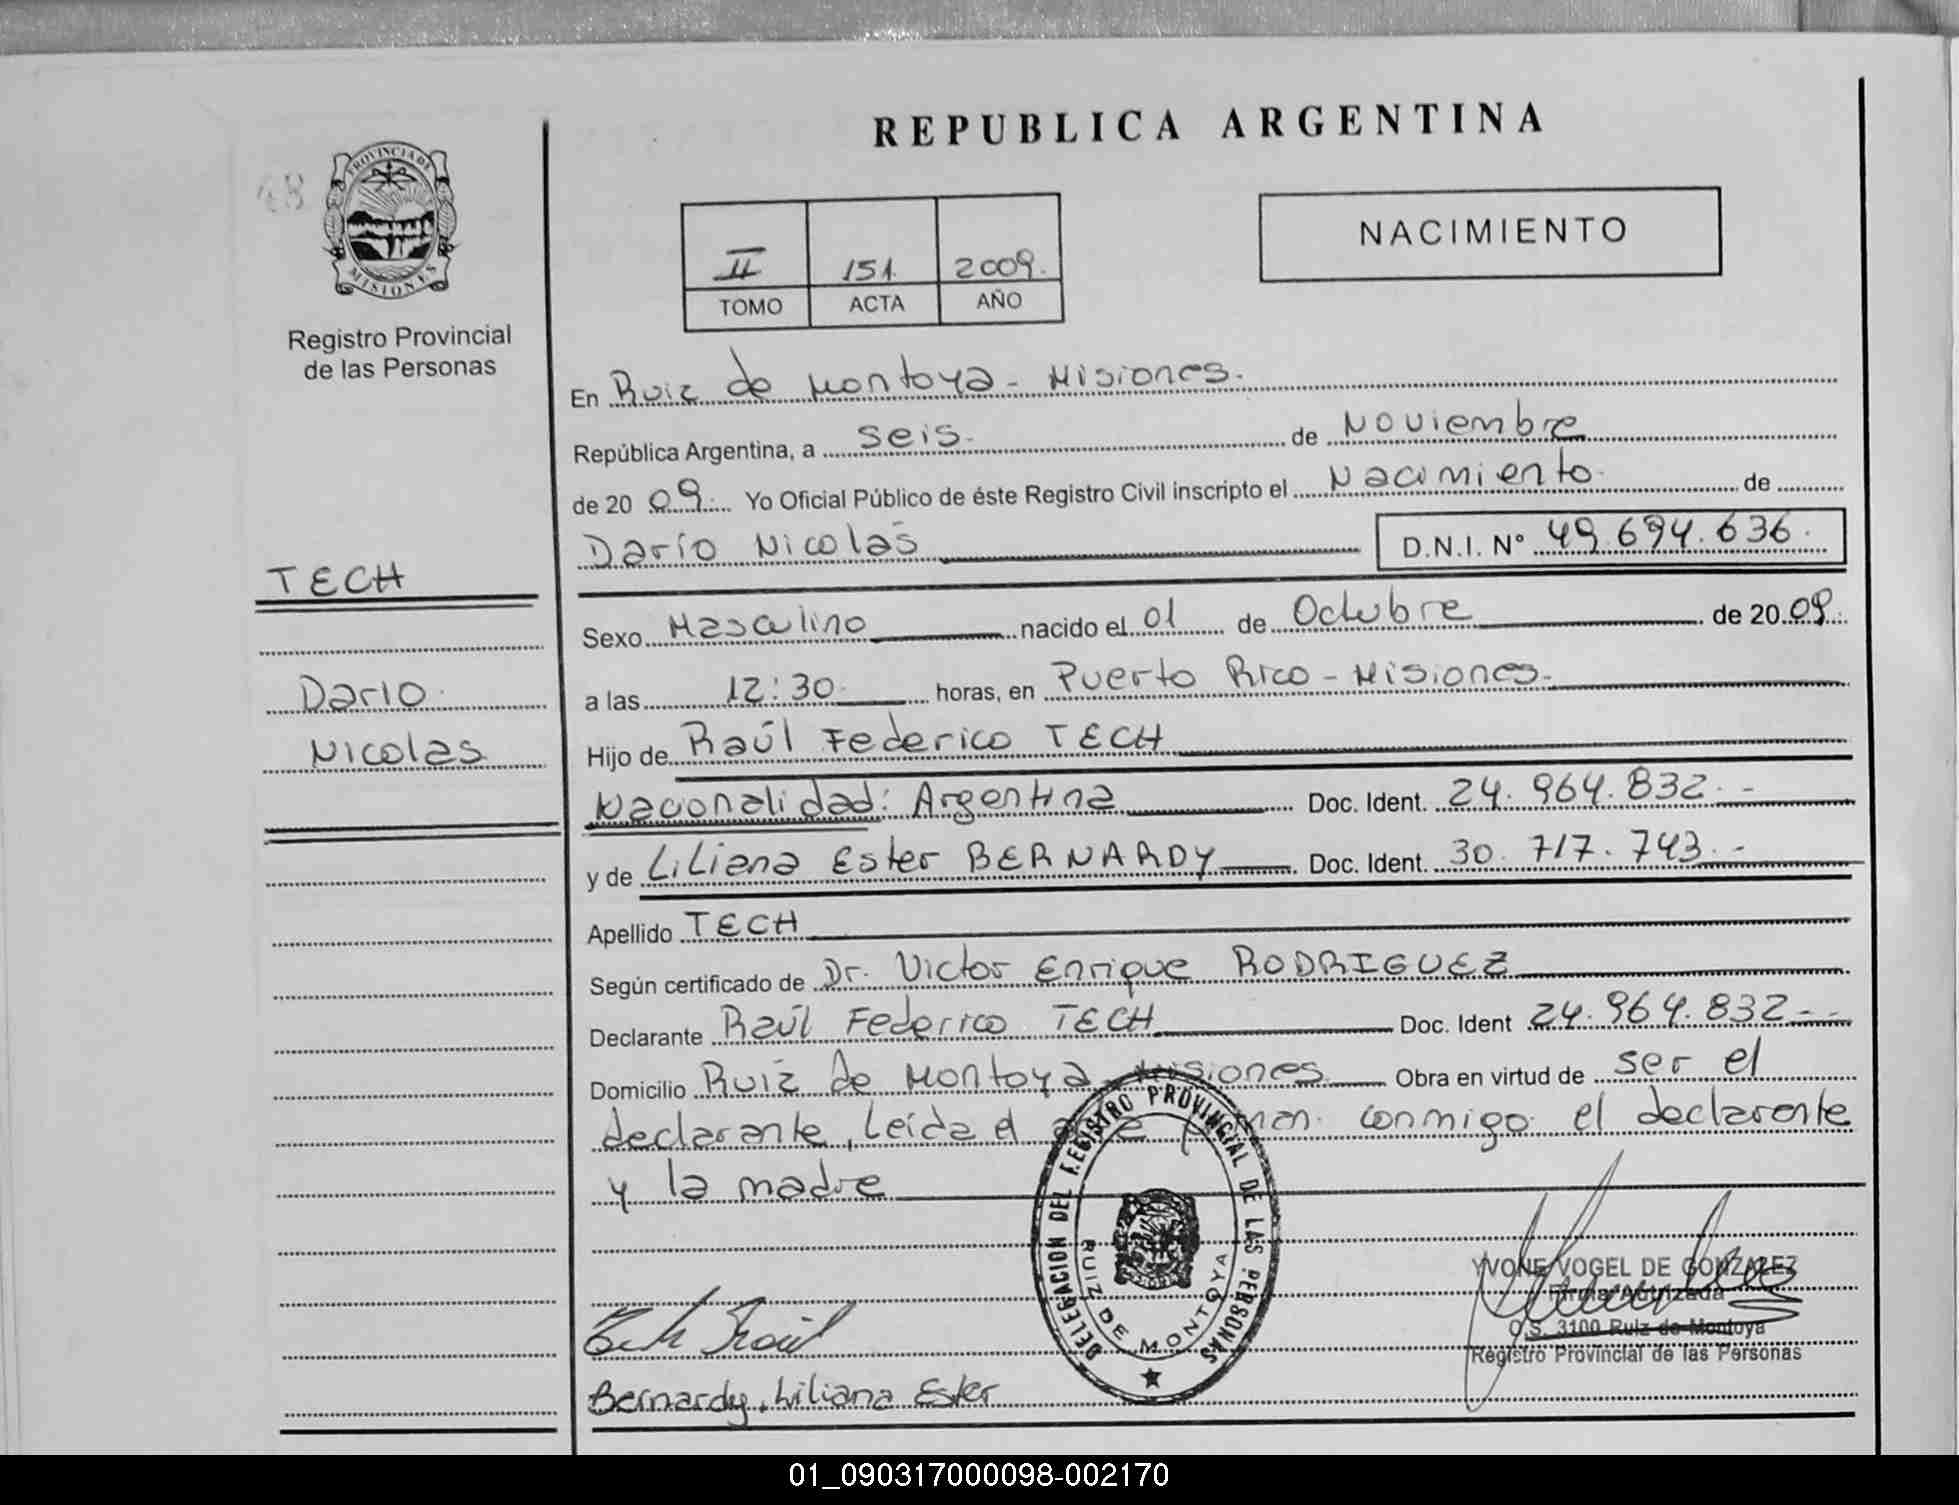 REPUBLICA ARGENTINA
PROVINCIA DE MISIONES
48
Registro Provincial
de las Personas
II 151 2009.
TOMO ACTA AÑO
NACIMIENTO
En Ruiz de Montoya - Misiones.
República Argentina, a seis. de Noviembre
de 20 09. Yo Oficial Público de éste Registro Civil inscripto el Nacimiento. de
Darío Nicolás D.N.I. N° 49.694.636.
TECH
Dario
Nicolas
Sexo Masculino nacido el 01 de Octubre de 20 09.
a las 12:30 horas, en Puerto Rico - Misiones.
Hijo de Raúl Federico TECH
Nacionalidad: Argentina Doc. Ident. 24.964.832.-
y de Liliana Ester BERNARDY Doc. Ident. 30.717.743.-
Apellido TECH
Según certificado de Dr. Victor Enrique RODRIGUEZ
Declarante Raúl Federico TECH Doc. Ident 24.964.832--
Domicilio Ruiz de Montoya - Misiones Obra en virtud de ser el
declarante, Leída el conmigo el declarante
y la madre
DELEGACION DEL REGISTRO PROVINCIAL DE LAS PERSONAS
RUIZ DE MONTOYA
YVONE VOGEL DE GONZALEZ
Firma Autrizada
O.S. 3100 Ruiz de Montoya
Registro Provincial de las Personas
Tech Raúl
Bernardy, Liliana Ester
01_090317000098-002170